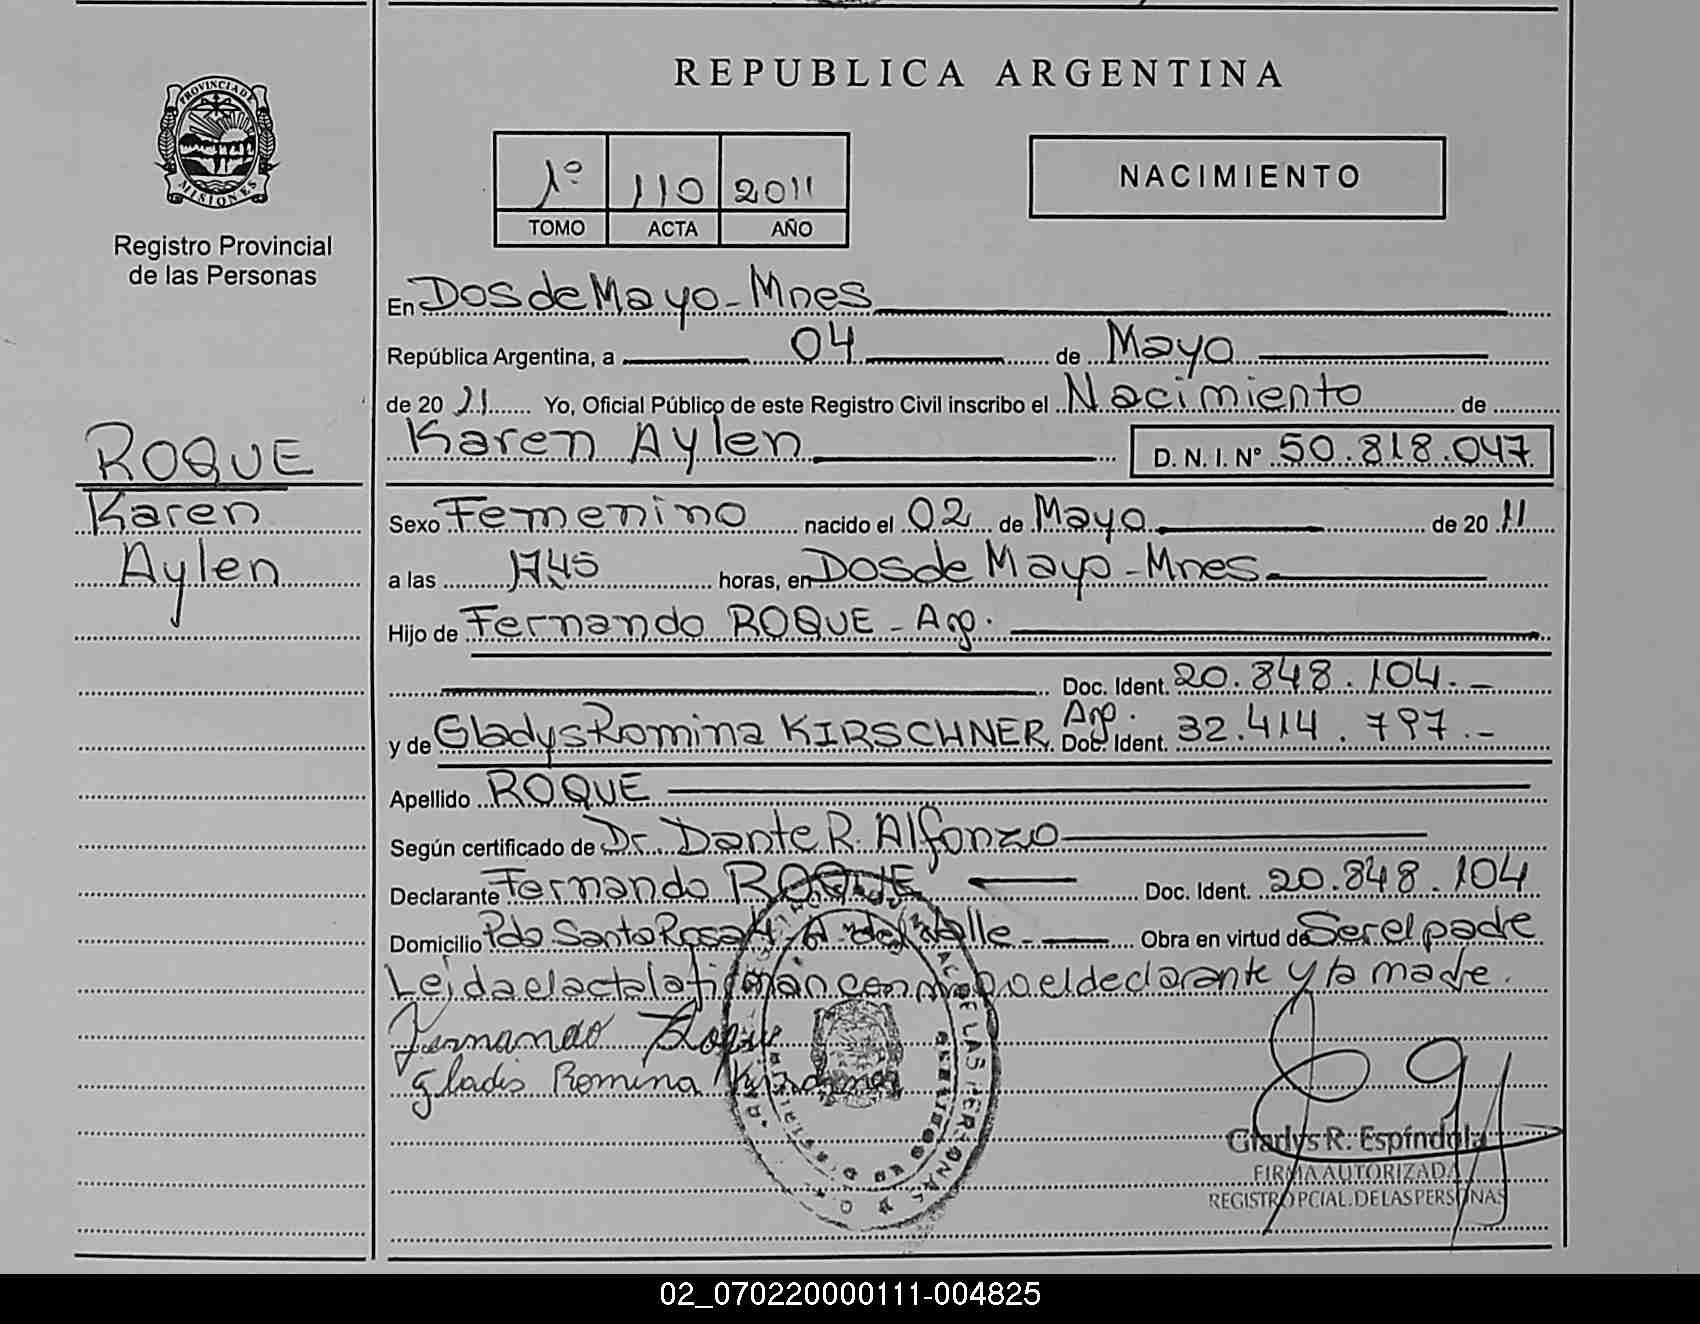 REPUBLICA ARGENTINA
PROVINCIA DE
MISIONES
Registro Provincial
de las Personas
1º 110 2011
TOMO ACTA AÑO
NACIMIENTO
En Dos de Mayo - Mnes
República Argentina, a 04 de Mayo
de 20 11 Yo, Oficial Público de este Registro Civil inscribo el Nacimiento de
Karen Aylen D. N. I. Nº 50.818.047
ROQUE
Karen
Aylen
Sexo Femenino nacido el 02 de Mayo de 20 11
a las 1745 horas, en Dos de Mayo - Mnes.
Hijo de Fernando ROQUE - Arg.
Doc. Ident. 20.848.104.-
y de Gladys Romina KIRSCHNER. Arg. Doc. Ident. 32.414.797.-
Apellido ROQUE
Según certificado de Dr. Dante R. Alfonzo
Declarante Fernando ROQUE Doc. Ident. 20.848.104
Domicilio Pdo Santa Rosa A. del Valle. Obra en virtud de Ser el padre
Leida el acta la firman conmigo el declarante y la madre.
Fernando Roque
Gladis Romina
Gladys R. Espíndola
FIRMA AUTORIZADA
REGISTRO PCIAL. DE LAS PERSONAS
02_070220000111-004825